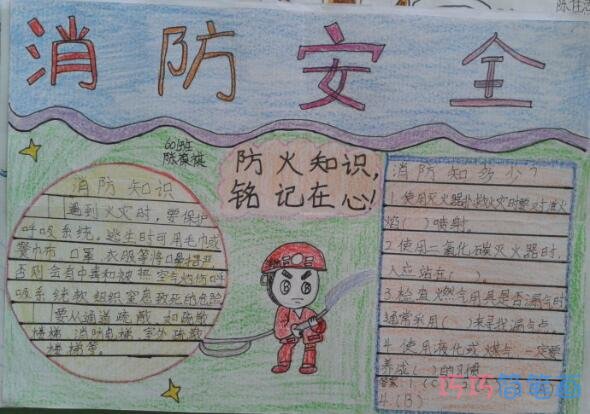 陈佳
消防安全
601班
陈
防火知识,
铭记在心!
消防知识
遇到火灾时,要保护
呼吸系统。逃生时可用毛巾或
餐巾布、口罩、衣服等将口鼻捂严
否则会有中毒和被热空气灼伤呼
吸系统软组织窒息致死的危险
要从通道疏散,如疏散
楼梯、消防电梯、室外疏散
楼梯等。
消防知多少?
1.使用灭火器扑救火灾时要对准火
焰( )喷射。
2.使用二氧化碳灭火器时,
人应站在( )。
3.检查燃气用具是否漏气时
通常采用( )来寻找漏气点。
4.使用液化或煤气,一定要
养成( )的习惯
答案:1.(C)
4.(B)
巧巧简笔画